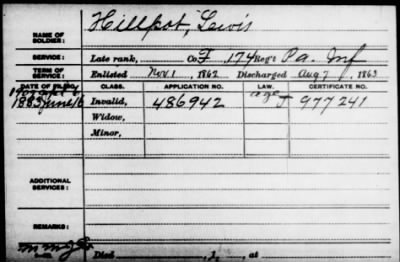 NAME OF SOLDIER: Hillpot, Lewis
SERVICE: Late rank, Co. F, 174 Reg't Pa. Inf
TERM OF SERVICE: Enlisted Nov. 1, 1862 Discharged Aug 7, 1863
DATE OF FILING. CLASS. APPLICATION NO. LAW. CERTIFICATE NO.
1883 June 16 Invalid, 486942 J 977241
Widow,
Minor,
ADDITIONAL SERVICES:
REMARKS:
Died , 1 , at